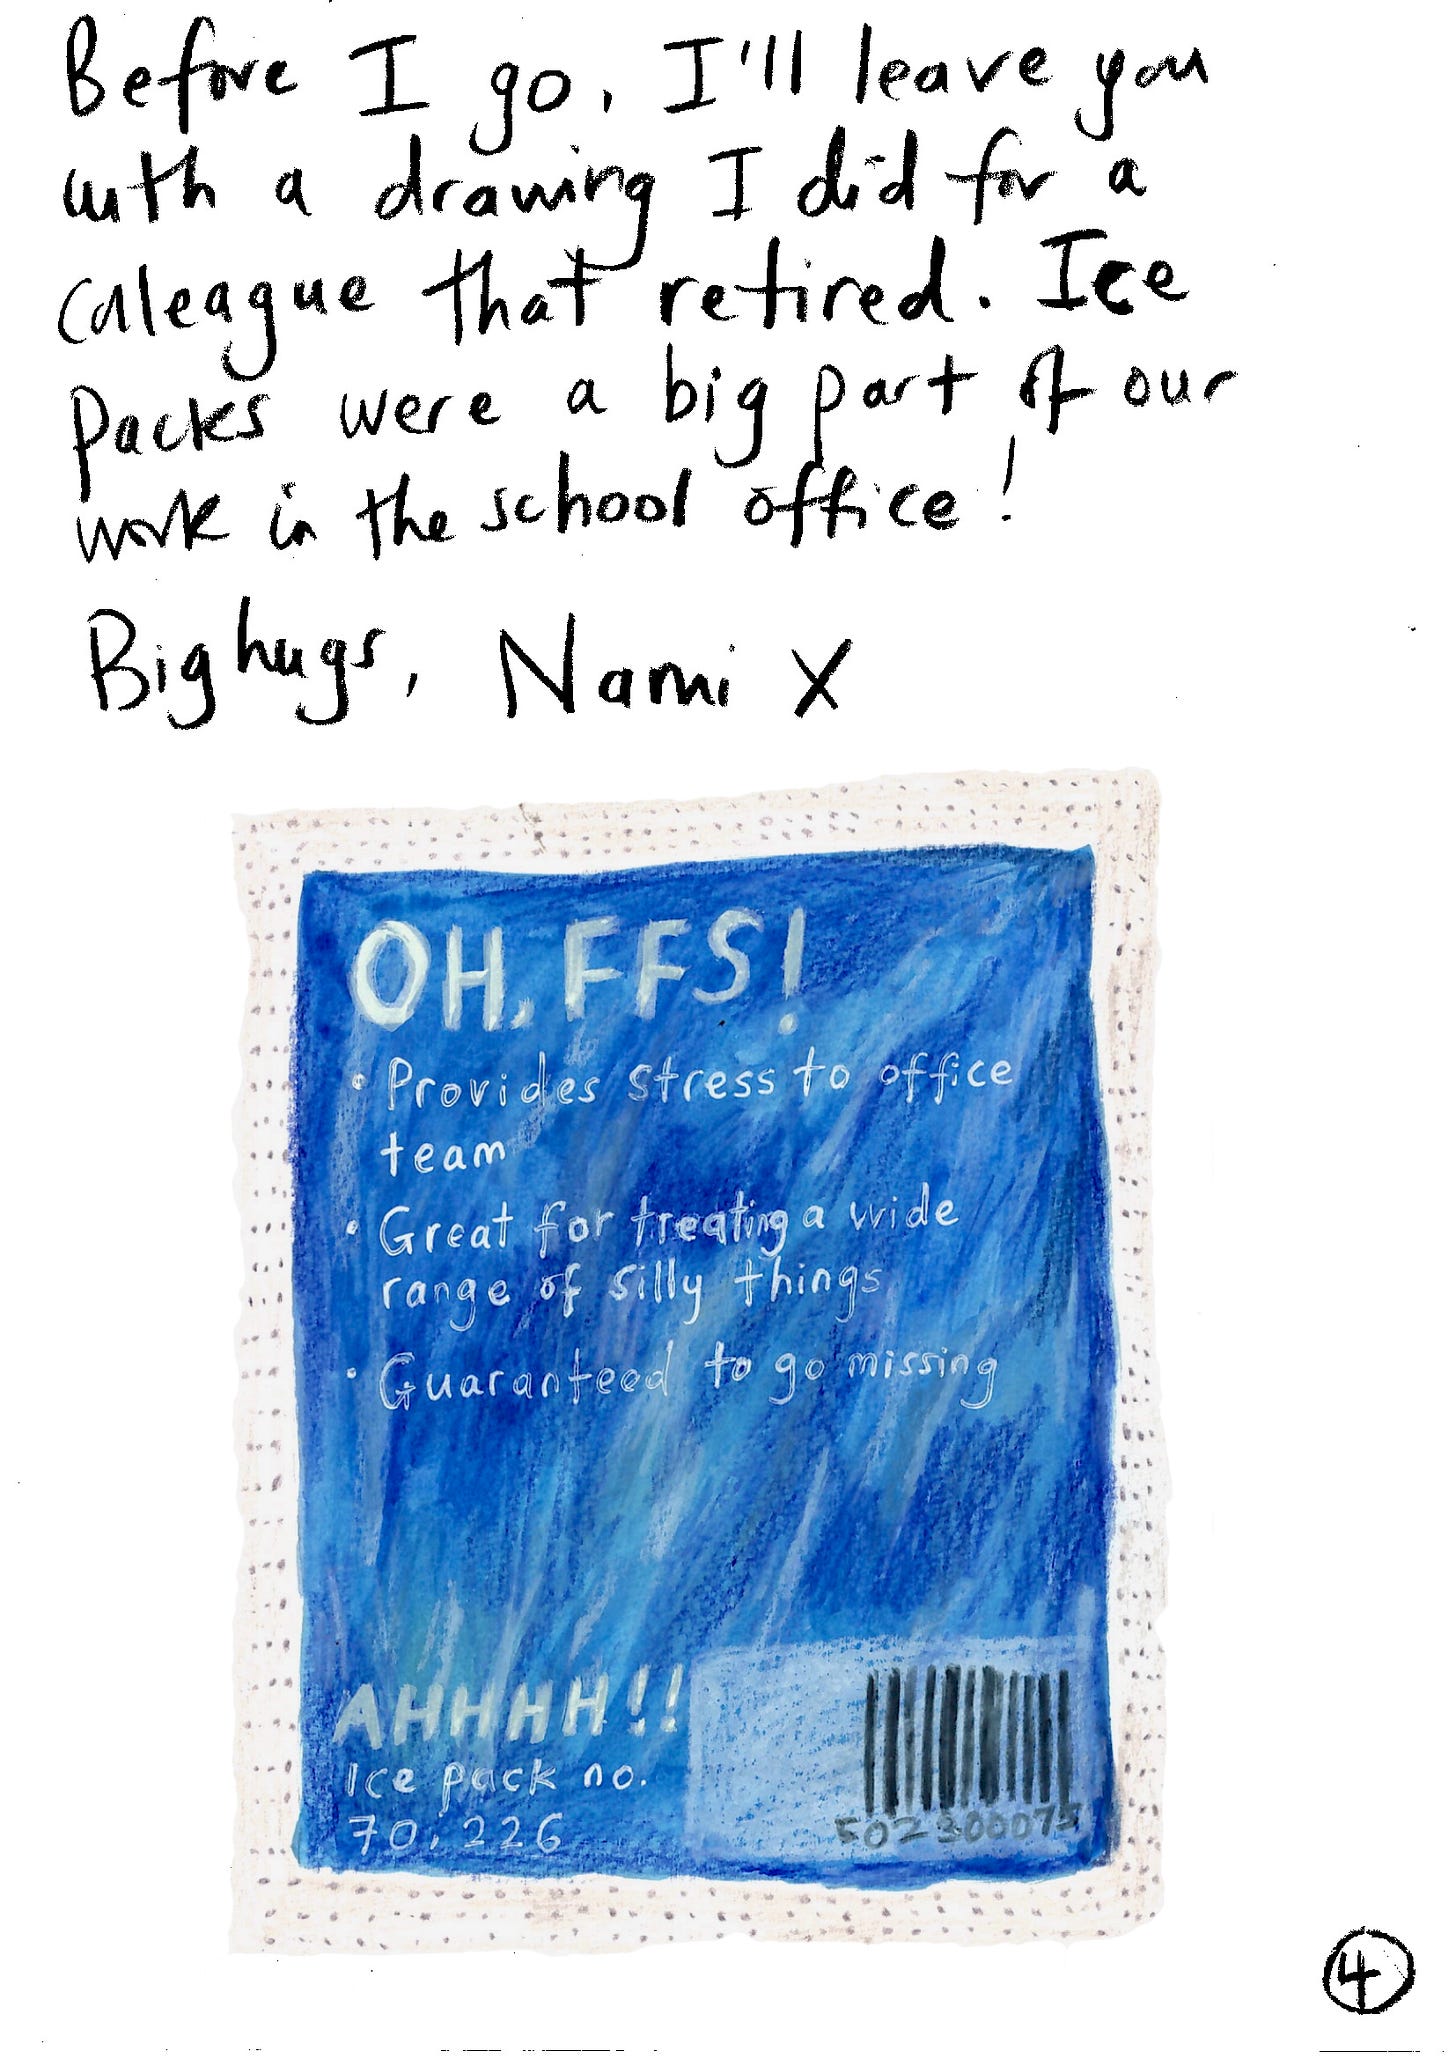 Before I go, I'll leave you
with a drawing I did for a
colleague that retired. Ice
packs were a big part of our
work in the school office!
Big hugs, Nami X
OH, FFS!
• Provides stress to office
team
• Great for treating a wide
range of silly things
• Guaranteed to go missing
AHHHH!!
Ice pack no.
70,226
5023000075
4